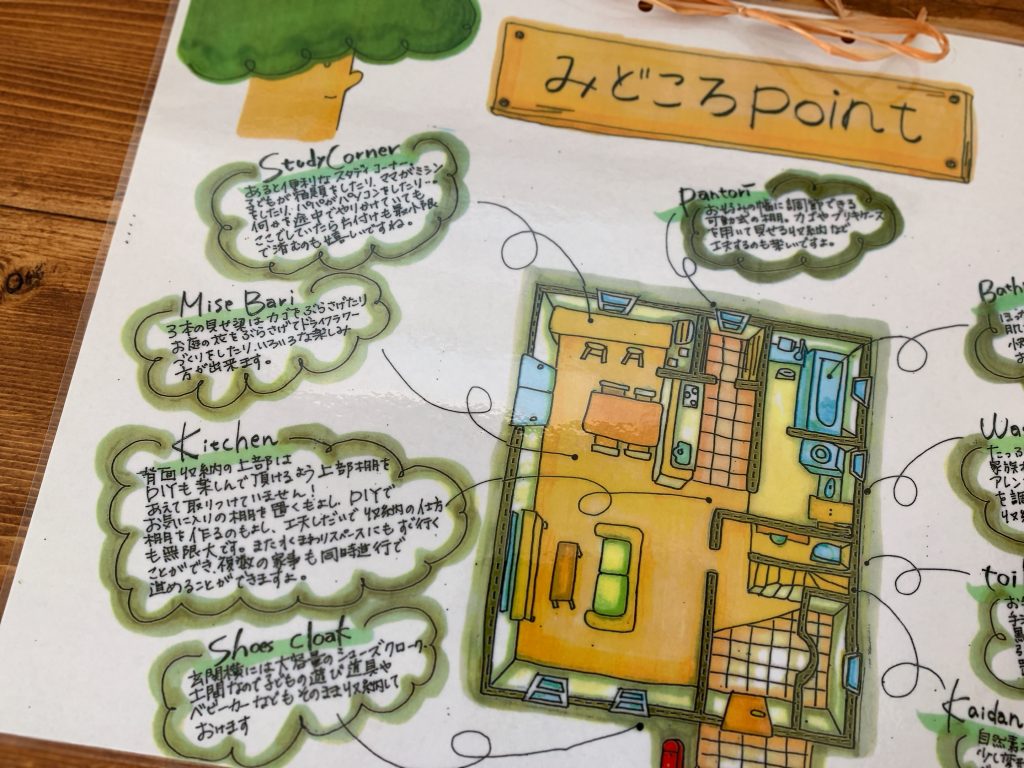 みどころpoint
Study Corner
あると便利なスタディコーナー。
子どもが宿題をしたり、ママがミシン
をしたり、パパがパソコンをしたり…
何かを途中でやりかけていても
ここでしていたら片付けも最小手限
で済むのも嬉しいですね。
Pantori
お好みの幅に調節できる
可動式の棚。カゴやブリキケース
を用いて見せる収納など
工夫するのも楽しいですよ。
Mise Bari
3本の見せ梁はカゴをぶらさげたり
お庭の花をぶらさげてドライフラワー
づくりをしたり、いろいろな楽しみ
方が出来ます。
Kitchen
背面収納の上部は
DIYも楽しんで頂けるよう上部棚を
あえて取りつけていません!
お気に入りの棚を置くもよし、DIYで
棚を作るのもよし、工夫しだいで収納の仕方
も無限大です。また水まわりスペースにもすぐ行く
ことができ、複数の家事も同時進行で
進めることができますよ。
Shoes cloak
玄関横には大容量のシューズクローク。
土間なので子どもの遊び道具や
ベビーカーなどもそのまま収納して
おけます
Bath
toi
Kaidan
自然素
少し変形